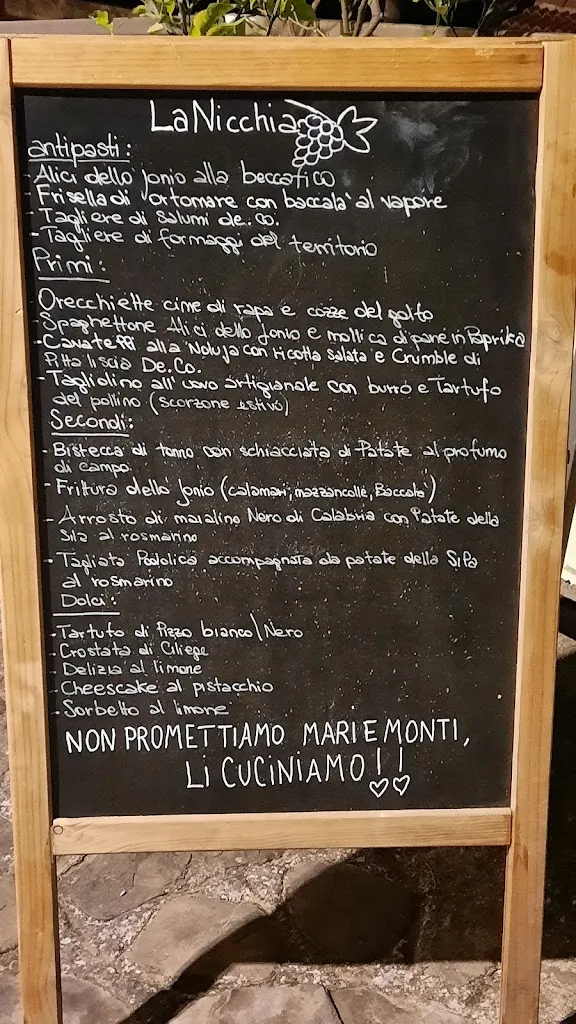 La Nicchia
antipasti:
- Alici dello Jonio alla beccafico
- Frisella di 'ortomare con baccala' al vapore
- Tagliere di Salumi de.co.
- Tagliere di formaggi del territorio
Primi:
Orecchiette cime di rapa e cozze del golfo
- Spaghettone Alici dello Jonio e mollica di pane in Paprika
- Cavatelli alla 'Noluja con ricotta salata e Crumble di
Pitta liscia De.Co.
- Tagliolino all'uovo artigianale con burro e Tartufo
del pollino (scorzone estivo)
Secondi:
- Bistecca di tonno con schiacciata di Patate al profumo
di campo
- Frittura dello Jonio (calamari, mazzancolle, Baccala')
- Arrosto di maialino Nero di Calabria con Patate della
Sila al rosmarino
- Tagliata Podolica accompagnata da patate della Sila
al rosmarino
Dolci:
- Tartufo di Pizzo bianco/Nero
- Crostata di Ciliege
- Delizia al limone
- Cheescake al pistacchio
- Sorbetto al limone
NON PROMETTIAMO MARI E MONTI,
Li CUCINIAMO!!